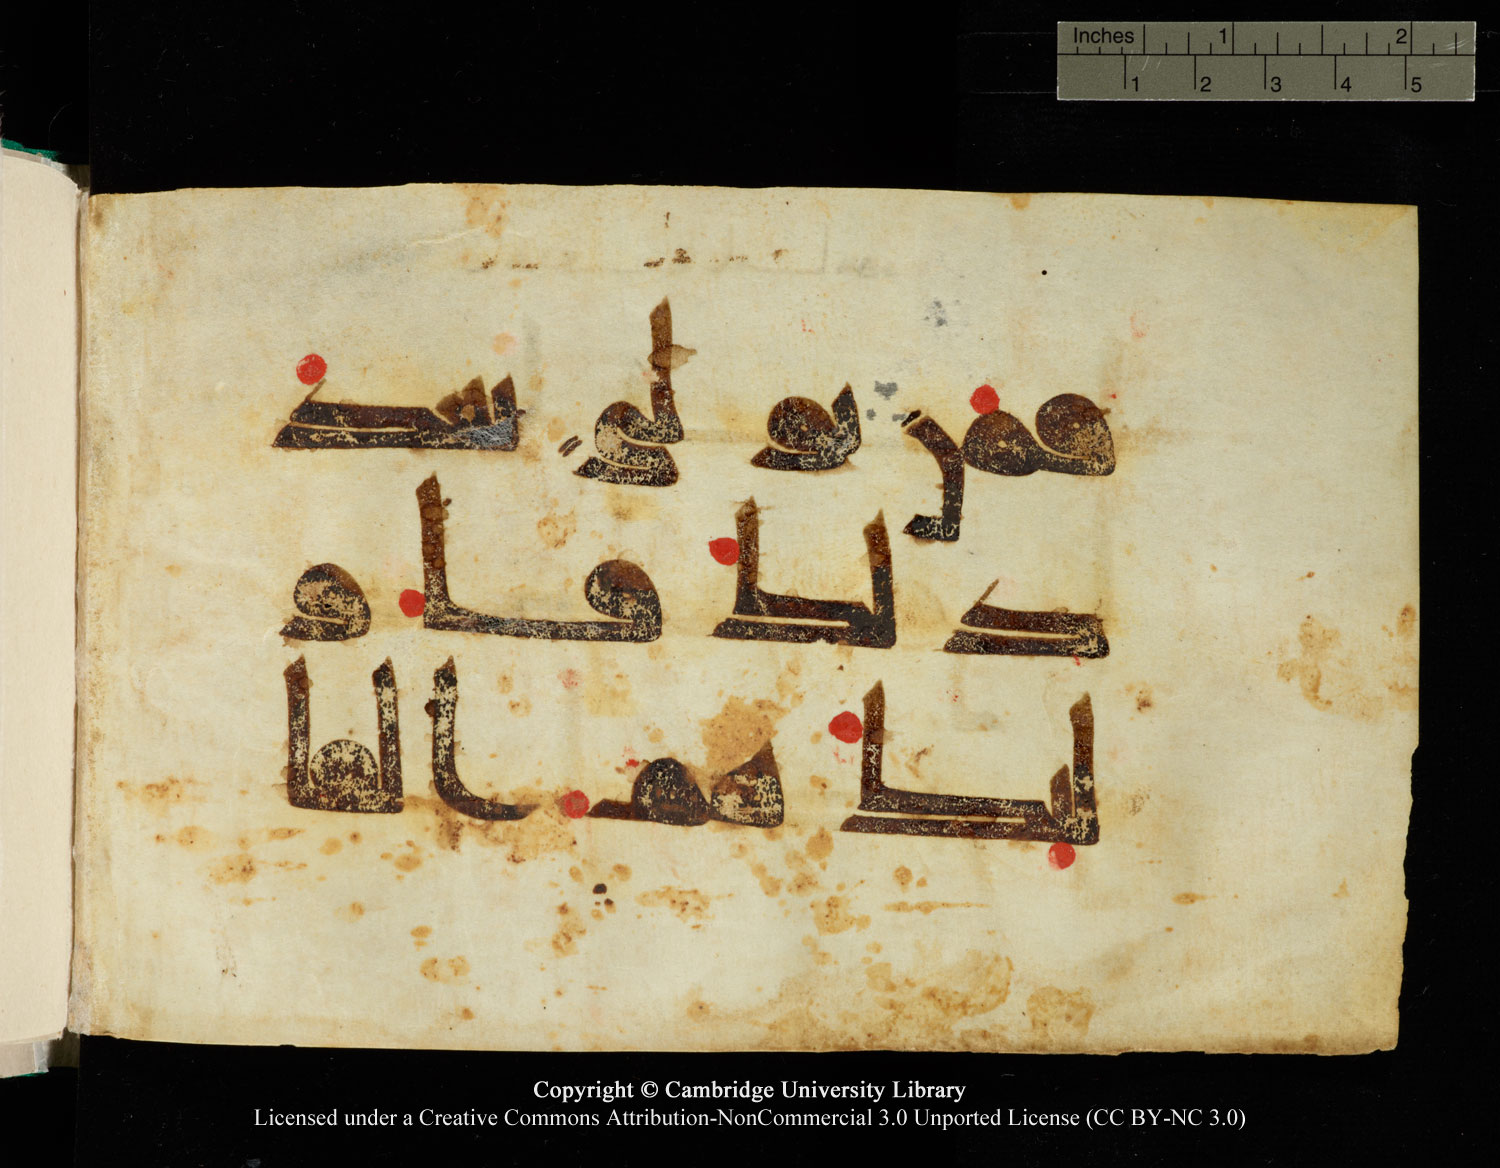 Inches 1 2
1 2 3 4 5
فمن تولى بعد
ذلك فاو
لئك هم الفا
Copyright © Cambridge University Library
Licensed under a Creative Commons Attribution-NonCommercial 3.0 Unported License (CC BY-NC 3.0)